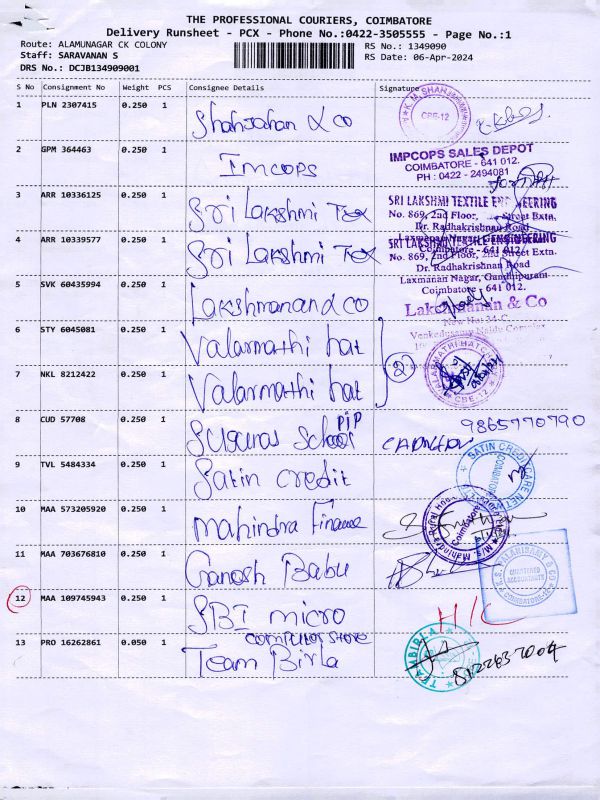 THE PROFESSIONAL COURIERS, COIMBATORE
Delivery Runsheet - PCX - Phone No.:0422-3505555 - Page No.:1
Route: ALAMUNAGAR CK COLONY RS No.: 1349090
Staff: SARAVANAN S RS Date: 06-Apr-2024
DRS No.: DCJB134909001
S No Consignment No Weight PCS Consignee Details Signature
1 PLN 2307415 0.250 1 Shahjahan & co
K.M SHAH CBE-12
2 GPM 364463 0.250 1 Imcops
IMPCOPS SALES DEPOT
COIMBATORE - 641 012.
PH : 0422 - 2494081
3 ARR 10336125 0.250 1 Sri Lakshmi Tex
SRI LAKSHMI TEXTILE ENGINEERING
No. 869, 2nd Floor, Street Extn.
Dr. Radhakrishnan Road
4 ARR 10339577 0.250 1 Sri Lakshmi Tex
SRI LAKSHMI TEXTILE ENGINEERING
No. 869, 2nd Floor, 2nd Street Extn.
Dr. Radhakrishnan Road
Laxmanan Nagar, Gandhipuram
Coimbatore - 641 012.
5 SVK 60435994 0.250 1 Lakshmanand co
Lakshmanan & Co
New No 34-C
Venkedusamy Naidu Complex
6 STY 6045081 0.250 1 Valarmathi hat
7 NKL 8212422 0.250 1 Valarmathi hat
2
VALARMATHI HATCH CBE-12
8 CUD 57708 0.250 1 Suguras School PIP
9865770790
9 TVL 5484334 0.250 1 Satin credit
SATIN CREDITCARE NET COIMBATORE
10 MAA 573205920 0.250 1 Mahindra Finance
M/s. Mahindra Rural Hou Coimbatore
11 MAA 703676810 0.250 1 Ganesh Babu
K.S. PALANISAMY & CO
CHARTERED
ACCOUNTANTS
COIMBATORE-12
12 MAA 109745943 0.250 1 SBI micro
H/C
13 PRO 16262861 0.050 1 Team Birla computer store
TEAM BIRLA
8122637004